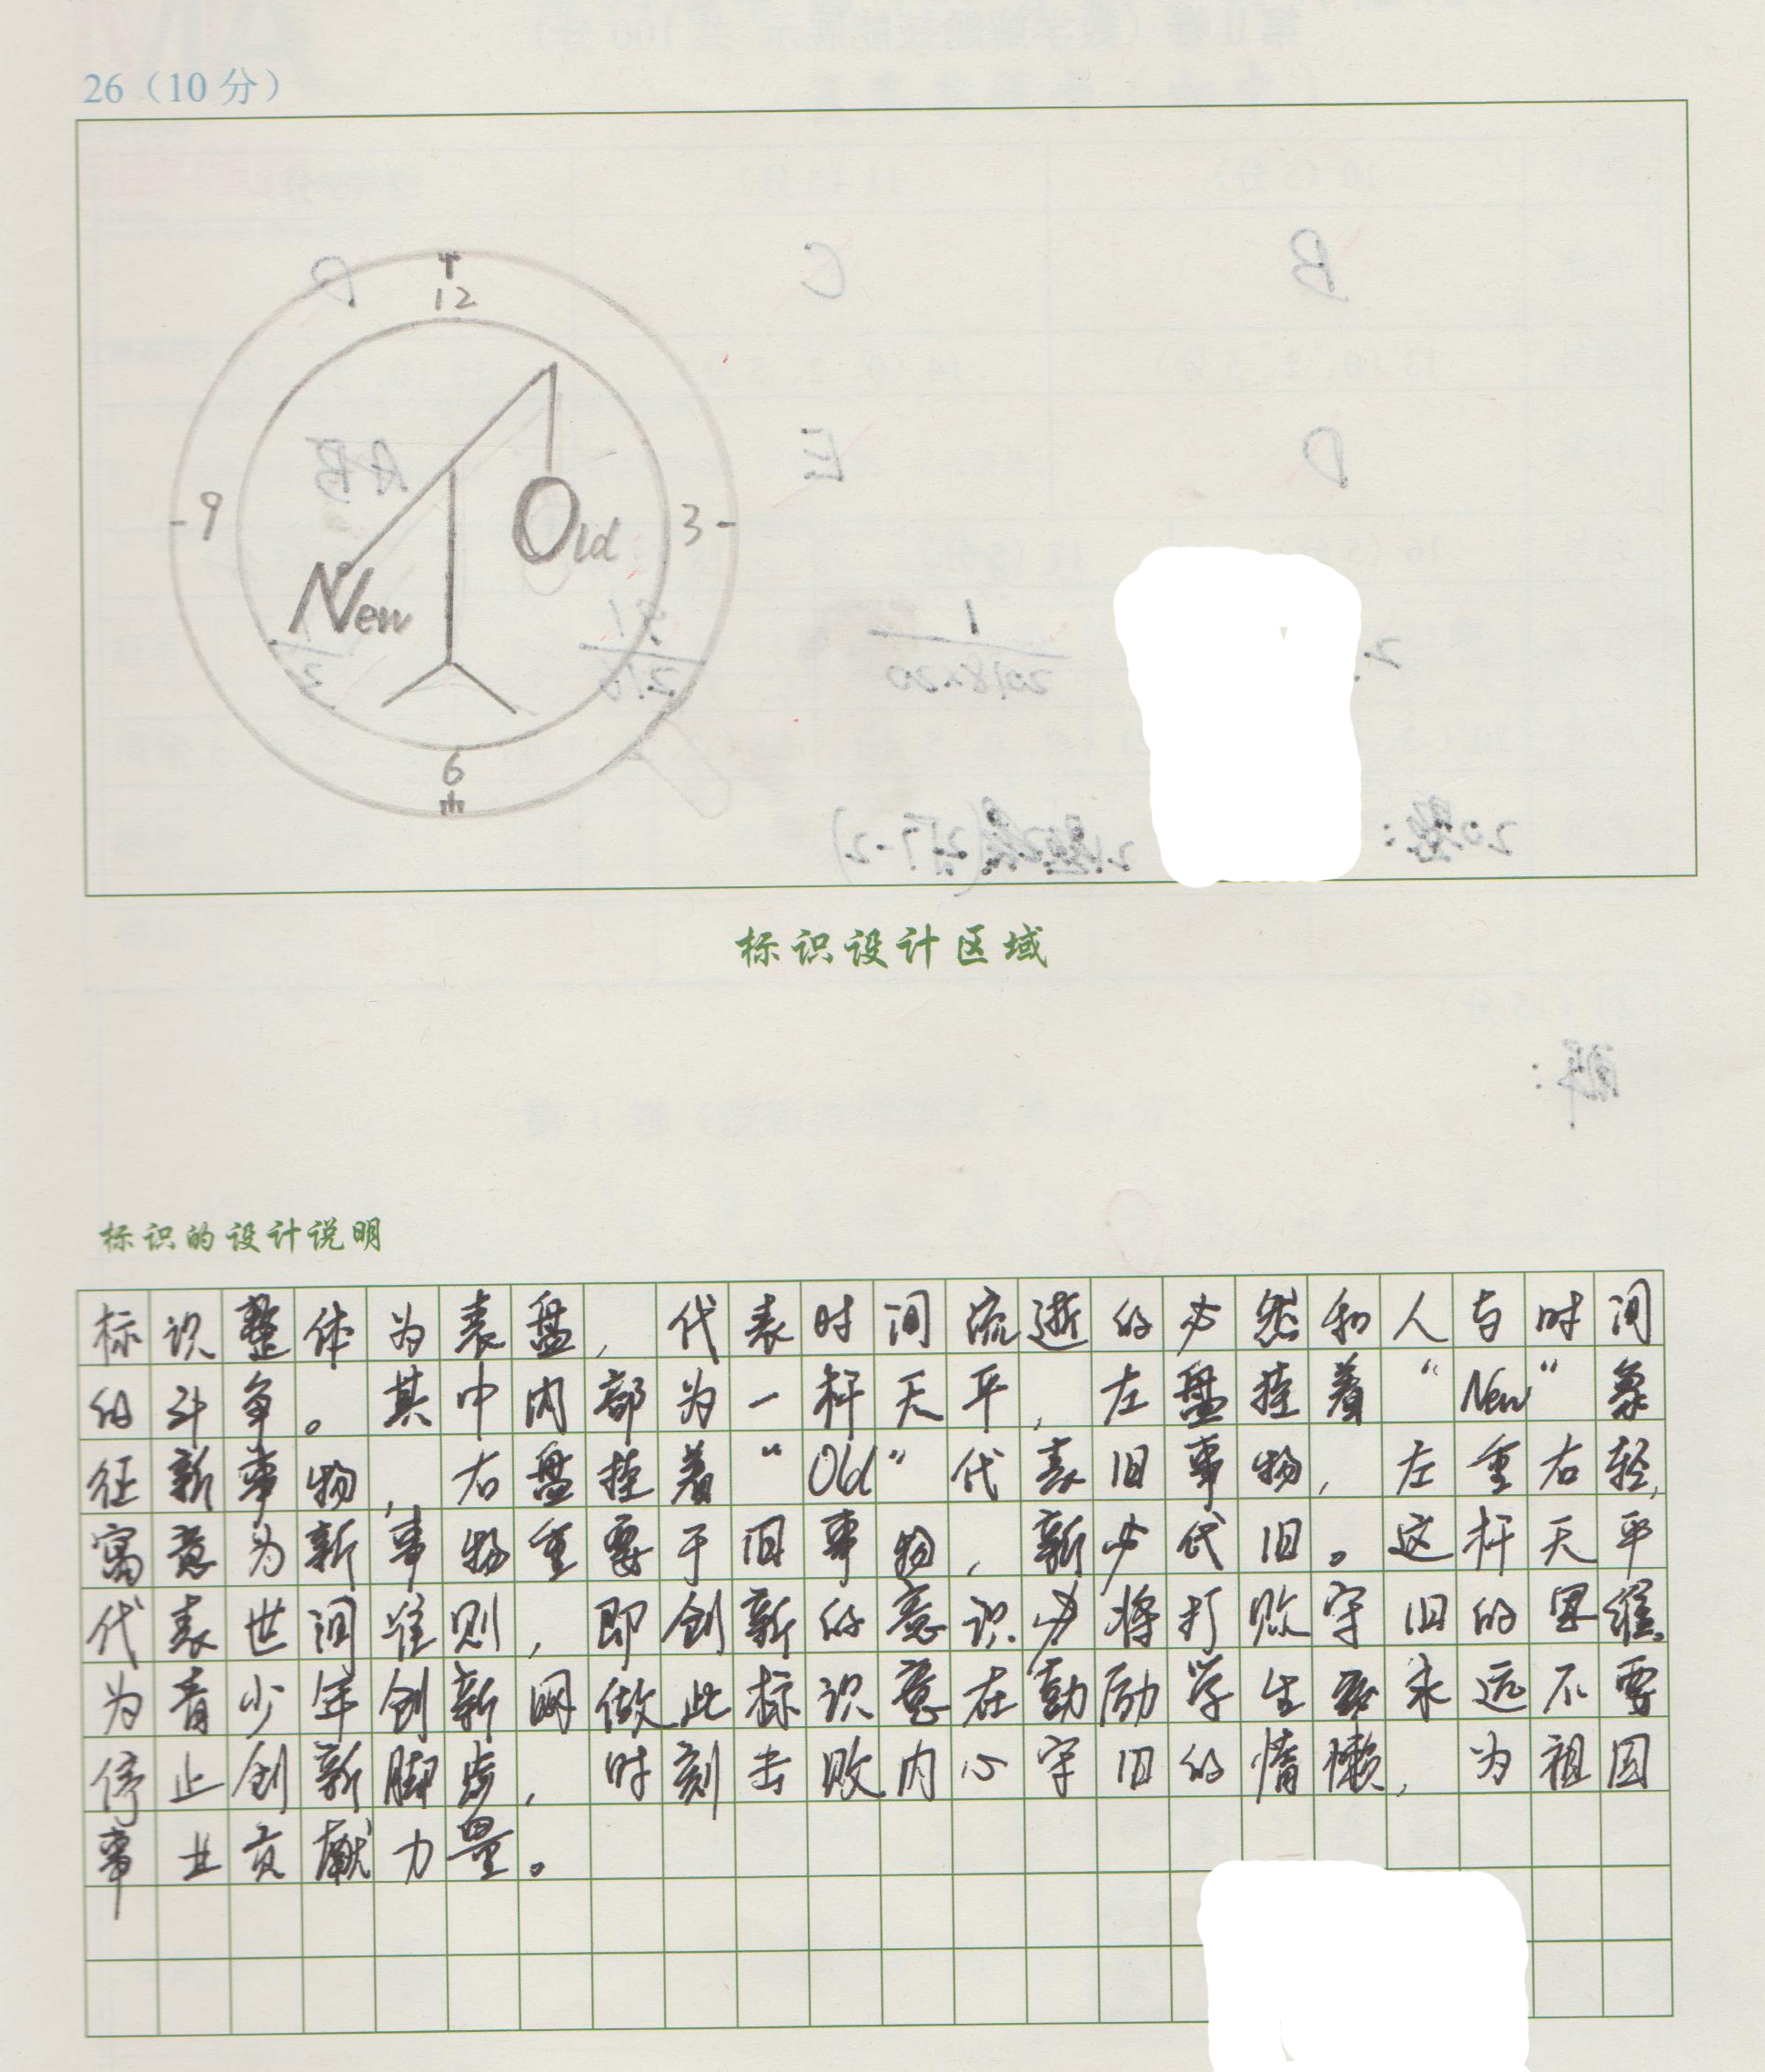 26（10 分）
12
9
3
Old
New
6
标识设计区域
标识的设计说明
标识整体为表盘，代表时间流逝的必然和人与时间
的斗争。其中内部为一杆天平，左盘挂着“New”象
征新事物，右盘挂着“Old”代表旧事物，左重右轻，
寓意为新事物重要于旧事物，新必代旧。这杆天平
代表世间准则，即创新的意识必将打败守旧的思维。
为青少年创新网做此标识意在勤励学生永远不要
停止创新脚步，时刻击败内心守旧的惰懒，为祖国
事业贡献力量。